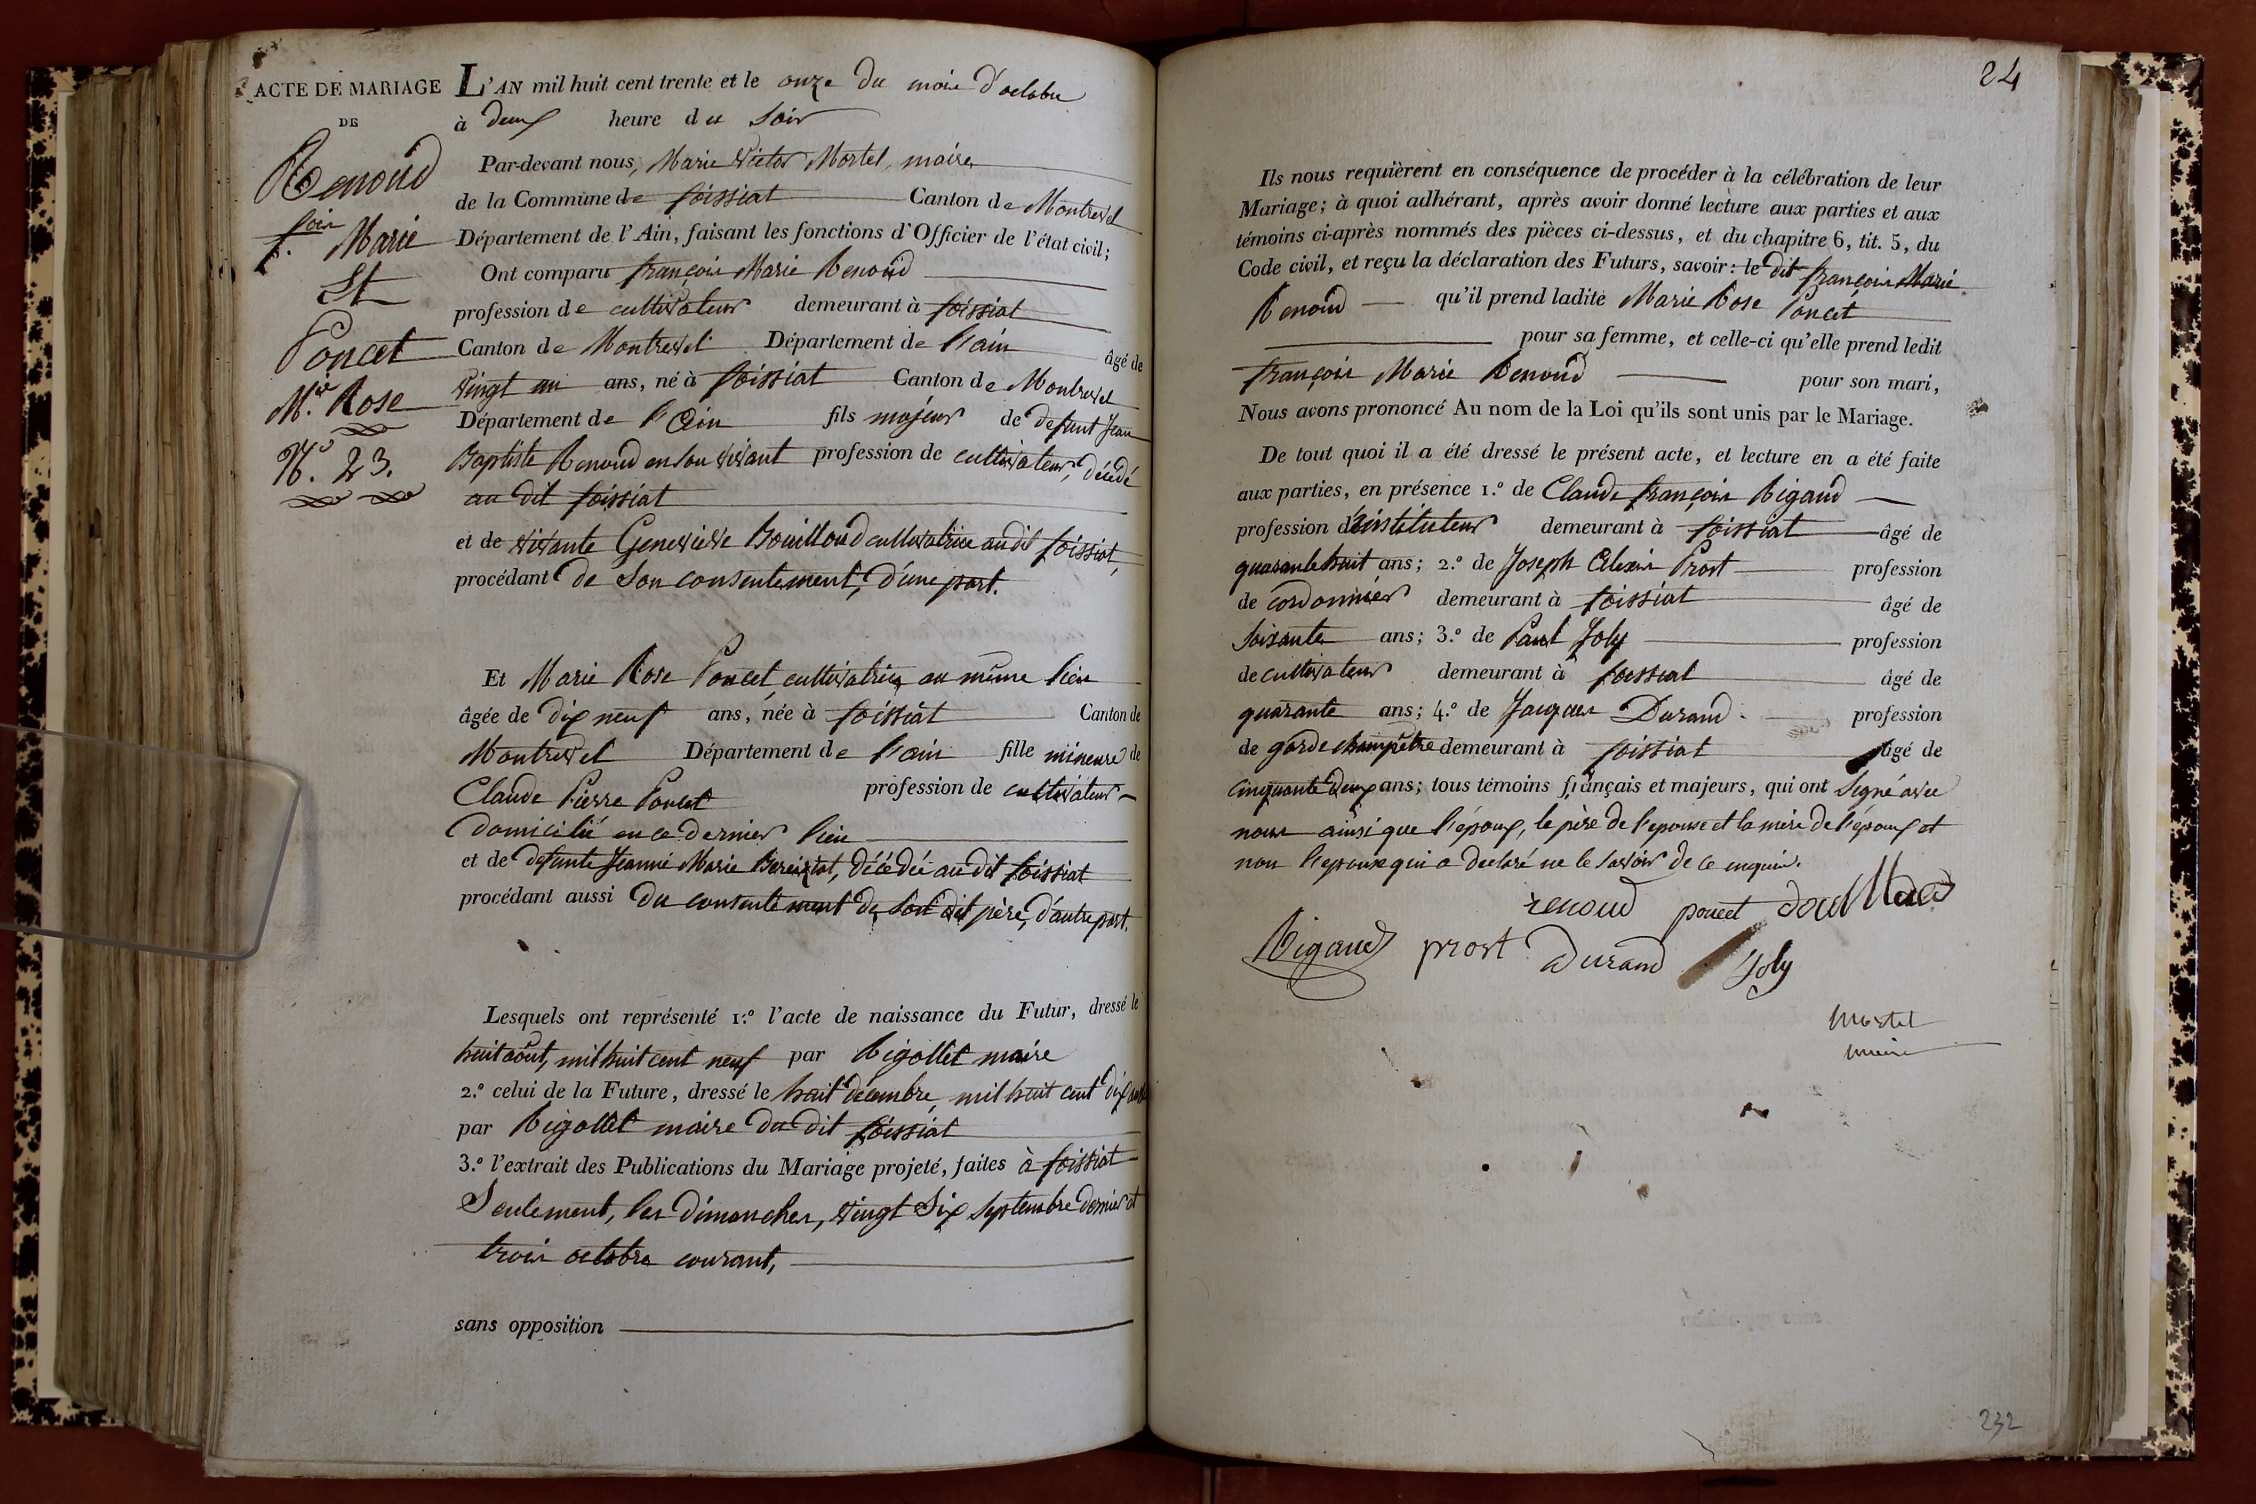 ACTE DE MARIAGE
DE
Renoud
f.ois Marie
Et
Poncet
M.ie Rose
N.o 23.
L'AN mil huit cent trente et le onze du mois d'octobre
à deux heure du soir
Par-devant nous, Marie Victor Mortel, maire
de la Commune de foissiat Canton de Montrevel
Département de l'Ain, faisant les fonctions d'Officier de l'état civil;
Ont comparu françois Marie Renoud
profession de cultivateur demeurant à foissiat
Canton de Montrevel Département de l'ain âgé de
vingt un ans, né à foissiat Canton de Montrevel
Département de l'Ain fils majeur de defunt Jean
Baptiste Renoud en son vivant profession de cultivateur, décédé
au dit foissiat
et de vivante Genevieve Bouilloud cultivatrice audit foissiat,
procédant de son consentement, d'une part.
Et Marie Rose Poncet, cultivatrice au même lieu
âgée de dix neuf ans, née à foissiat Canton de
Montrevel Département de l'ain fille mineure de
Claude Pierre Poncet profession de cultivateur
domicilié en ce dernier lieu
et de defunte Jeanne Marie décédée au dit foissiat
procédant aussi du consentement de son dit père, d'autre part.
Lesquels ont représenté 1.º l'acte de naissance du Futur, dressé le
huit août, mil huit cent neuf par Rigollet maire
2.º celui de la Future, dressé le huit décembre mil huit cent dix
par Rigollet maire du dit foissiat
3.º l'extrait des Publications du Mariage projeté, faites à foissiat
Seulement, les dimanches, vingt Six Septembre dernier et
trois octobre courant,
sans opposition
24
Ils nous requièrent en conséquence de procéder à la célébration de leur
Mariage; à quoi adhérant, après avoir donné lecture aux parties et aux
témoins ci-après nommés des pièces ci-dessus, et du chapitre 6, tit. 5, du
Code civil, et reçu la déclaration des Futurs, savoir: le dit françois Marie
Renoud qu'il prend ladite Marie Rose Poncet
pour sa femme, et celle-ci qu'elle prend ledit
françois Marie Renoud pour son mari,
Nous avons prononcé Au nom de la Loi qu'ils sont unis par le Mariage.
De tout quoi il a été dressé le présent acte, et lecture en a été faite
aux parties, en présence 1.º de Claude françois Rigaud
profession d'instituteur demeurant à foissiat âgé de
quarante huit ans; 2.º de Joseph Alexis Prost profession
de cordonnier demeurant à foissiat âgé de
soixante ans; 3.º de Paul Joly profession
de cultivateur demeurant à foissiat âgé de
quarante ans; 4.º de Jacques Durand profession
de garde champêtre demeurant à foissiat âgé de
cinquante deux ans; tous témoins français et majeurs, qui ont signé avec
nous ainsi que l'époux, le père de l'epouse et la mère de l'époux et
non l'epouse qui a declaré ne le savoir de ce enquise.
renoud poncet
Rigaud prost Durand Joly
Mortel
maire
232